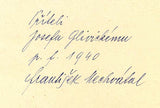 Příteli
Josefu Glivickému
p. f. 1940
František Nechvátal